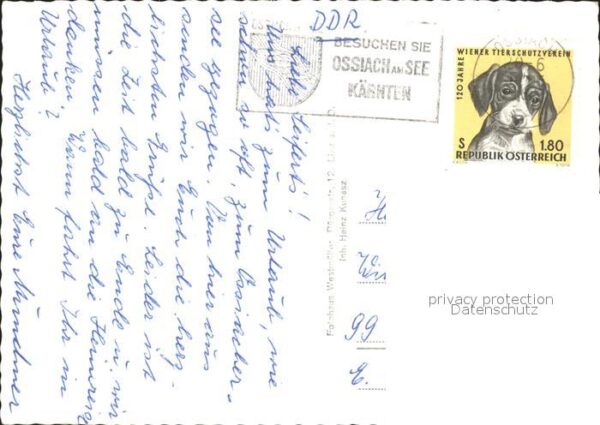 DDR
OSSIACH
BESUCHEN SIE
OSSIACH AM SEE
KÄRNTEN
120 JAHRE WIENER TIERSCHUTZVEREIN
S 1.80
REPUBLIK ÖSTERREICH
Liebe Seiferts!
Uns hats zum Urlaub, wie
schon so oft, zum Ossiacher-
see gezogen. Von hier aus
senden wir Euch die herz-
lichsten Grüße. Leider ist
die Zeit bald zu Ende u. wir
müssen bald an die Heimreise
denken. Wann fahrt Ihr in
Urlaub?
Herzlichst Eure
Inh. Heinz Kunasz
99
privacy protection
Datenschutz